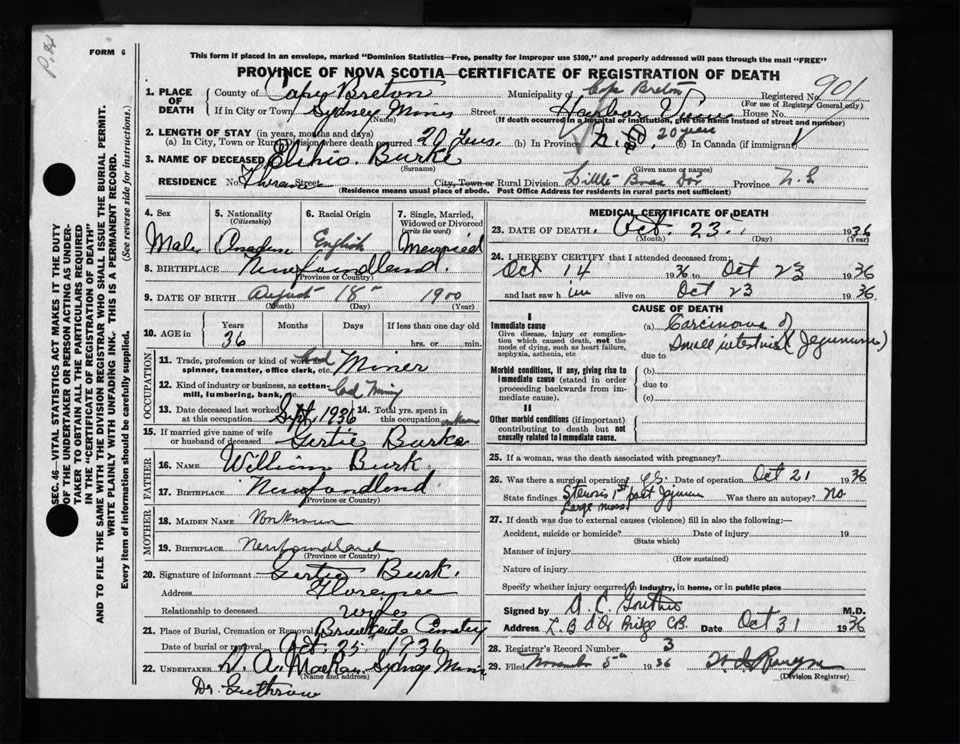 FORM 6
This form if placed in an envelope, marked "Dominion Statistics—Free, penalty for improper use $300," and properly addressed will pass through the mail "FREE"
PROVINCE OF NOVA SCOTIA—CERTIFICATE OF REGISTRATION OF DEATH
901
1. PLACE OF DEATH
County of Cape Breton Municipality of Cape Breton Registered No.
(For use of Registrar General only)
If in City or Town Sydney Mines Street Harbor View House No.
(Name) (If death occurred in a hospital or institution, give the name instead of street and number)
2. LENGTH OF STAY (in years, months and days)
(a) In City, Town or Rural Division where death occurred 20 Yrs. (b) In Province 20 years (c) In Canada (if immigrant)
3. NAME OF DECEASED Burke
(Surname) (Given name or names)
RESIDENCE No. Florence Street City, Town or Rural Division Little Bras Dor Province N.S
(Residence means usual place of abode. Post Office Address for residents in rural parts not sufficient)
4. Sex
Male
5. Nationality
(Citizenship)
6. Racial Origin
English
7. Single, Married, Widowed or Divorced
(write the word)
Married
8. BIRTHPLACE Newfoundland.
(Province or Country)
9. DATE OF BIRTH August 18 1900
(Month) (Day) (Year)
10. AGE in
Years Months Days If less than one day old
36 hrs. or min.
OCCUPATION
11. Trade, profession or kind of work as spinner, teamster, office clerk, etc. Coal Miner
12. Kind of industry or business, as cotton-mill, lumbering, bank, etc. Coal Mining
13. Date deceased last worked at this occupation Sept. 1936
14. Total yrs. spent in this occupation unknown
15. If married give name of wife or husband of deceased Gertie Burke
FATHER
16. NAME William Burk
17. BIRTHPLACE Newfoundland
MOTHER
18. MAIDEN NAME Unknown
19. BIRTHPLACE Newfoundland
(Province or Country)
20. Signature of informant Gertie Burk.
Address Florence
Relationship to deceased wife
21. Place of Burial, Cremation or Removal Brookside Cemetry
Date of burial or removal Oct. 25 1936
22. UNDERTAKER Sydney Mines
(Name and address)
MEDICAL CERTIFICATE OF DEATH
23. DATE OF DEATH Oct. 23. 1936
(Month) (Day) (Year)
24. I HEREBY CERTIFY that I attended deceased from:
Oct 14 1936 to Oct 23 1936
and last saw him alive on Oct 23 1936.
CAUSE OF DEATH
I
Immediate cause
Give disease, injury or complication which caused death, not the mode of dying, such as heart failure, asphyxia, asthenia, etc
(a) Carcinoma of
Small intestine (Jejunum)
due to
Morbid conditions, if any, giving rise to immediate cause (stated in order proceeding backwards from immediate cause).
(b)
due to
(c)
II
Other morbid conditions (if important) contributing to death but not causally related to immediate cause.
25. If a woman, was the death associated with pregnancy?
26. Was there a surgical operation? yes Date of operation Oct 21 1936
State findings Stenosis 1st part Jejunum Was there an autopsy? no
Large mass
27. If death was due to external causes (violence) fill in also the following:—
Accident, suicide or homicide? Date of injury 19
(State which)
Manner of injury
(How sustained)
Nature of injury
Specify whether injury occurred in industry, in home, or in public place
Signed by M.D.
Address Date Oct 31 1936
28. Registrar's Record Number 3
29. Filed November 5th 1936
(Division Registrar)
SEC. 46—VITAL STATISTICS ACT MAKES IT THE DUTY
OF THE UNDERTAKER OR PERSON ACTING AS UNDERTAKER
TO OBTAIN ALL THE PARTICULARS REQUIRED
IN THE "CERTIFICATE OF REGISTRATION OF DEATH"
AND TO FILE THE SAME WITH THE DIVISION REGISTRAR WHO SHALL ISSUE THE BURIAL PERMIT.
WRITE PLAINLY WITH UNFADING INK. THIS IS A PERMANENT RECORD.
Every item of information should be carefully supplied. (See reverse side for instructions.)